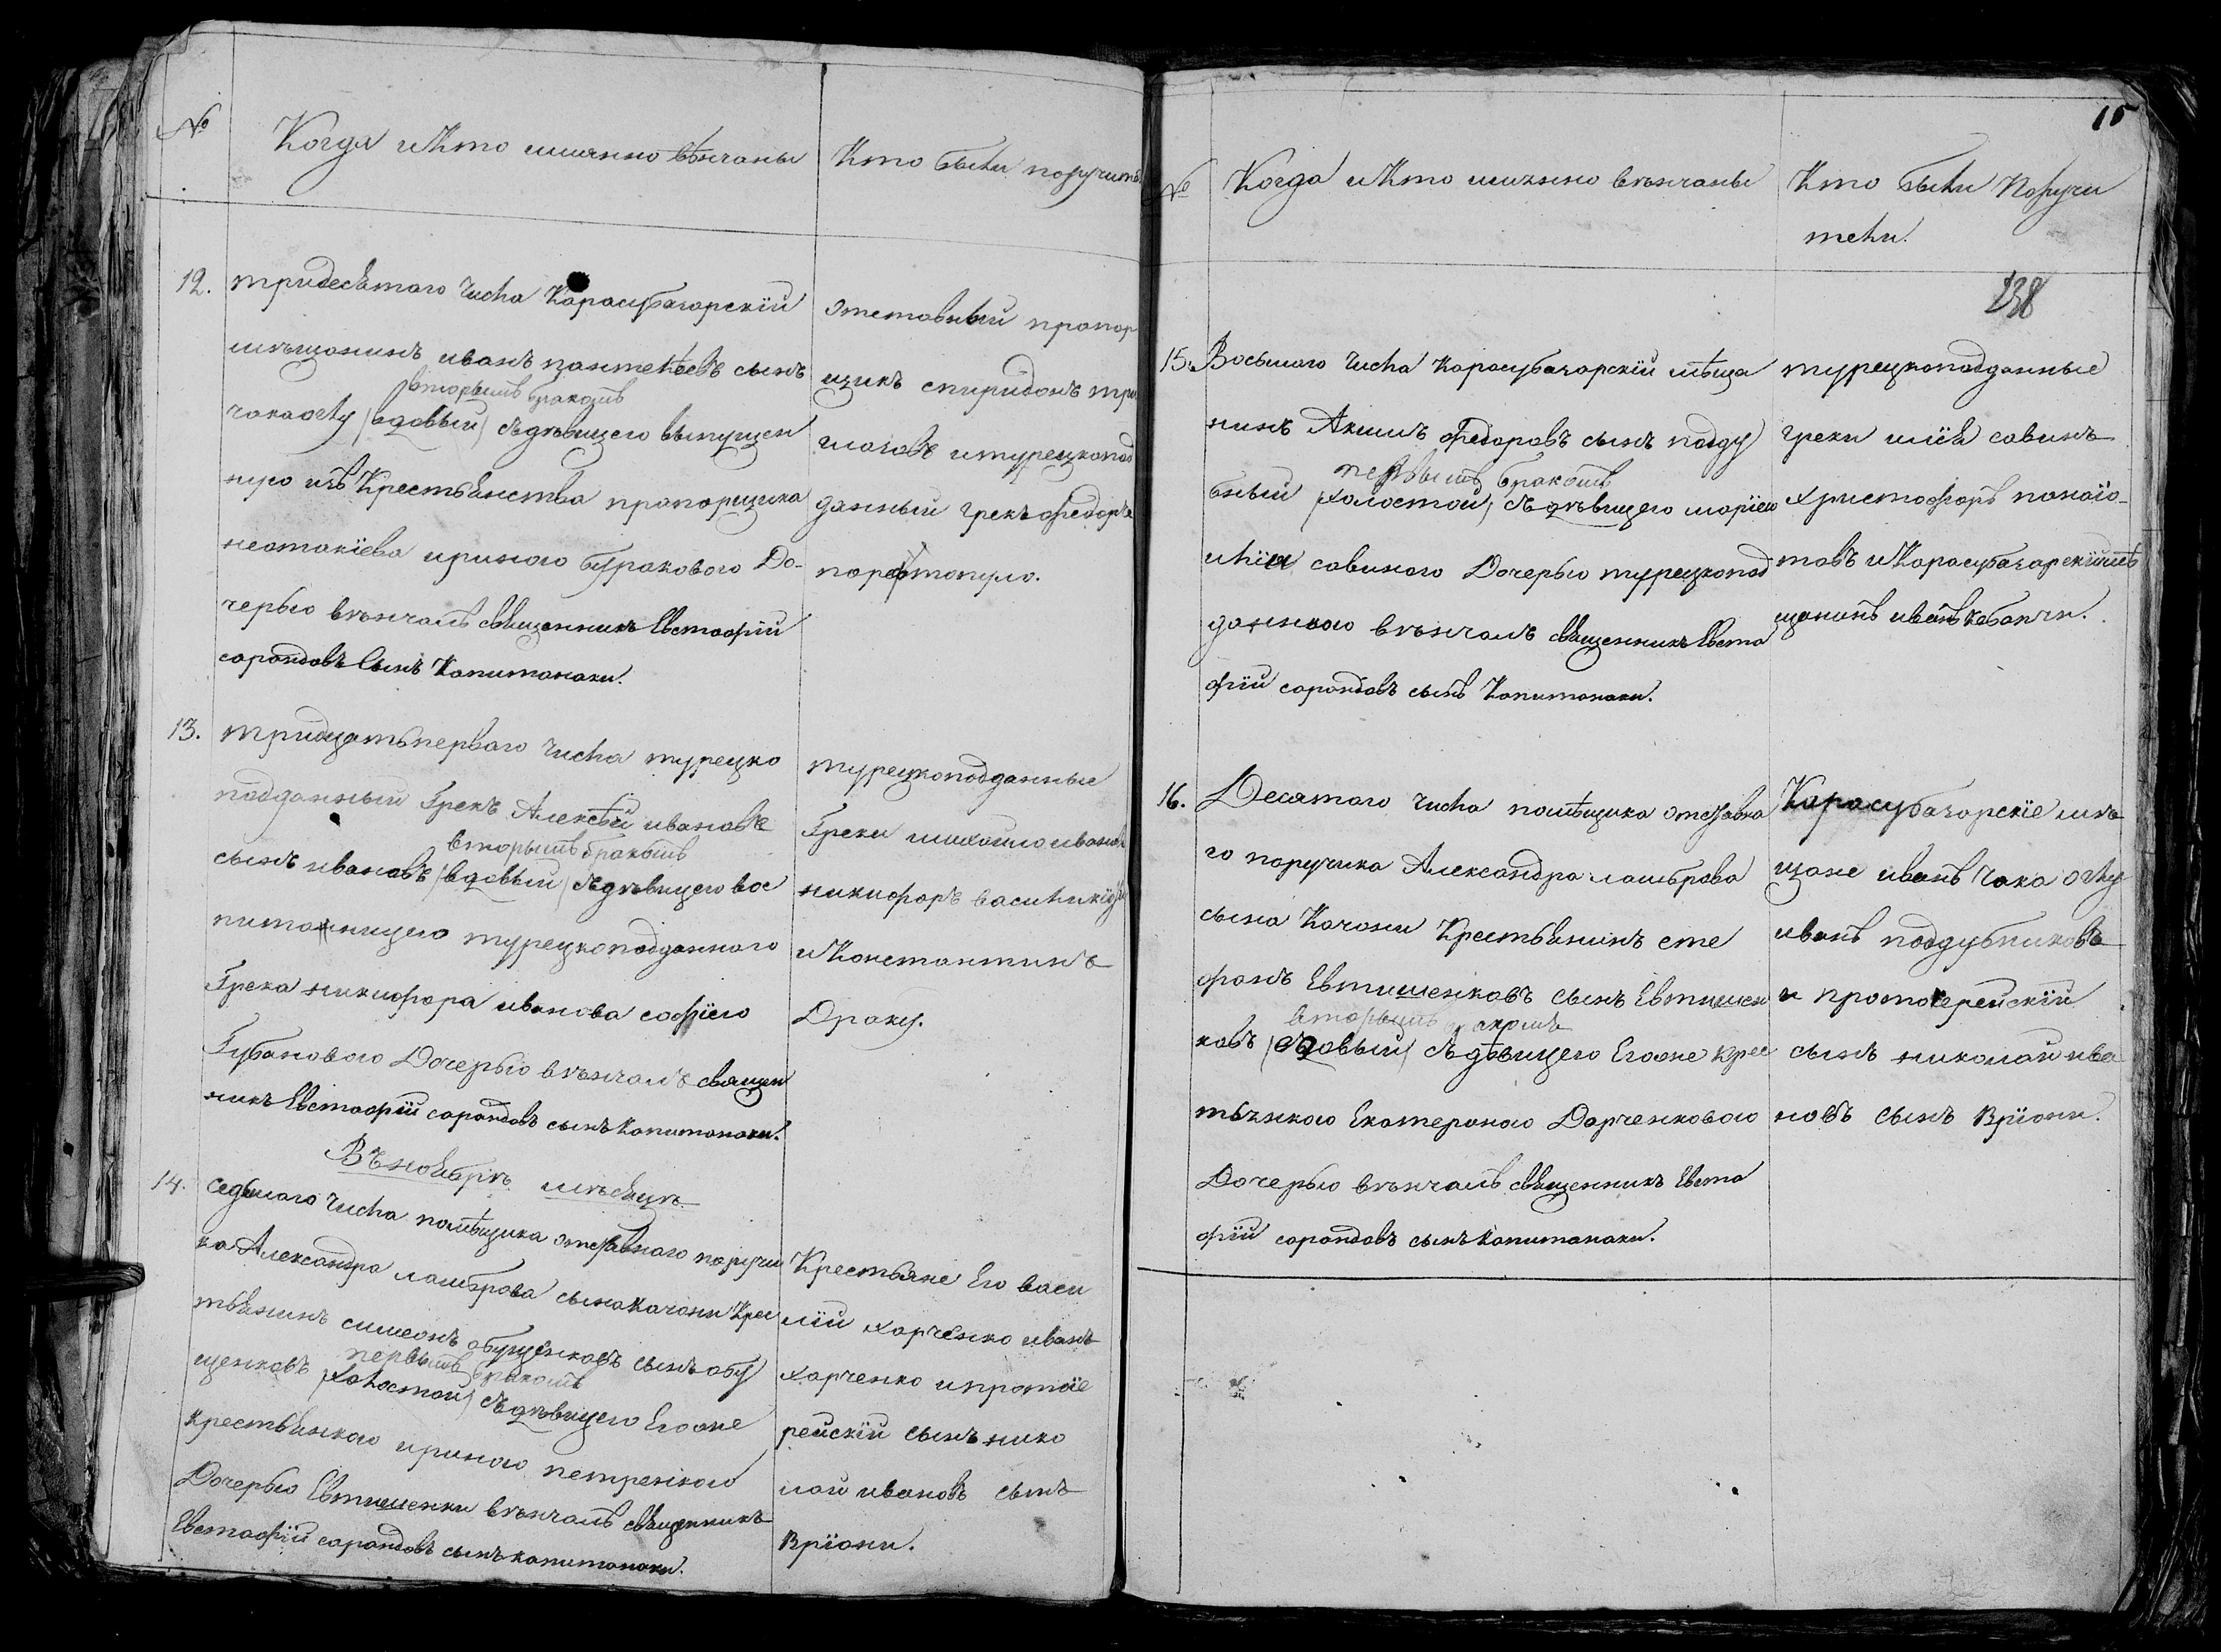 №
Когда и Кто имянно вѣнчаны
Кто были поручит
12.
тридесятаго числа Карасубазарскій
мѣщанинъ иванъ пантелѣевъ сынъ
вторымъ бракомъ
чакаоглу (вдовый) съ дѣвицею выпущен
ною изъ Крестьянства прапорщика
неотакіева ириною бураковою До-
черью вѣнчалъ священникъ Евстафій
сарандовъ Сынъ Капитанаки.
отставный прапор
щикъ спиридонъ
и турецкопод
данный грекъ Федоръ
13.
тридцатьперваго числа турецко
подданный Грекъ Алексѣй ивановъ
вторымъ бракомъ
сынъ ивановъ (вдовый) съ дѣвицею вос
питанницею турецкоподданнаго
Грека никифора иванова софіею
Губановою Дочерью вѣнчалъ священ
никъ Евстафій сарандовъ сынъ Капитанаки.
турецкоподданные
Греки михайло иванов
никифоръ
и Константинъ
Драку.
Въ ноябрѣ мѣсяцѣ.
14.
седьмаго числа помѣщика отставнаго поручи
ка Александра ламброва сына Качони Крес
тьянинъ симеонъ обущенковъ сынъ обу
первымъ бракомъ
щенковъ (холостой) съ дѣвицею Его же
крестьянкою ириною петренкою
Дочерью Евтишенки вѣнчалъ священникъ
Евстафій сарандовъ сынъ капитанаки.
Крестьяне Его васи
лій харченко иванъ
харченко и протоіе
рейскій сынъ нико
лай ивановъ сынъ
Вріони.
15
№
Когда и Кто имянно вѣнчаны
Кто были Поручи
тели.
238
15.
Восьмаго числа Карасубазарскій мѣща
нинъ Акимъ Федоровъ сынъ подду
первымъ бракомъ
бный (холостой) съ дѣвицею маріею
иліи савиною Дочерью турецкопод
даннаго вѣнчалъ священникъ Евста
фій сарандовъ сынъ Капитанаки.
турецкоподданные
греки илія савинъ
Христофоръ панаіо-
товъ и Карасубазарскій мѣ
щанинъ иванъ кебапчи.
16.
Десятаго числа помѣщика отставна
го поручика Александра ламброва
сына Качони Крестьянинъ сте
фанъ Евтишенковъ сынъ Евтишен
вторымъ бракомъ
ковъ (вдовый) съ дѣвицею Его же крес
тьянкою Екатериною Дарченковою
Дочерью вѣнчалъ священникъ Евста
фій сарандовъ сынъ Капитанаки.
Карасубазарскіе мѣ
щане иванъ Чака оглу
иванъ
и протоіерейскій
сынъ николай ива
новъ сынъ Вріони.